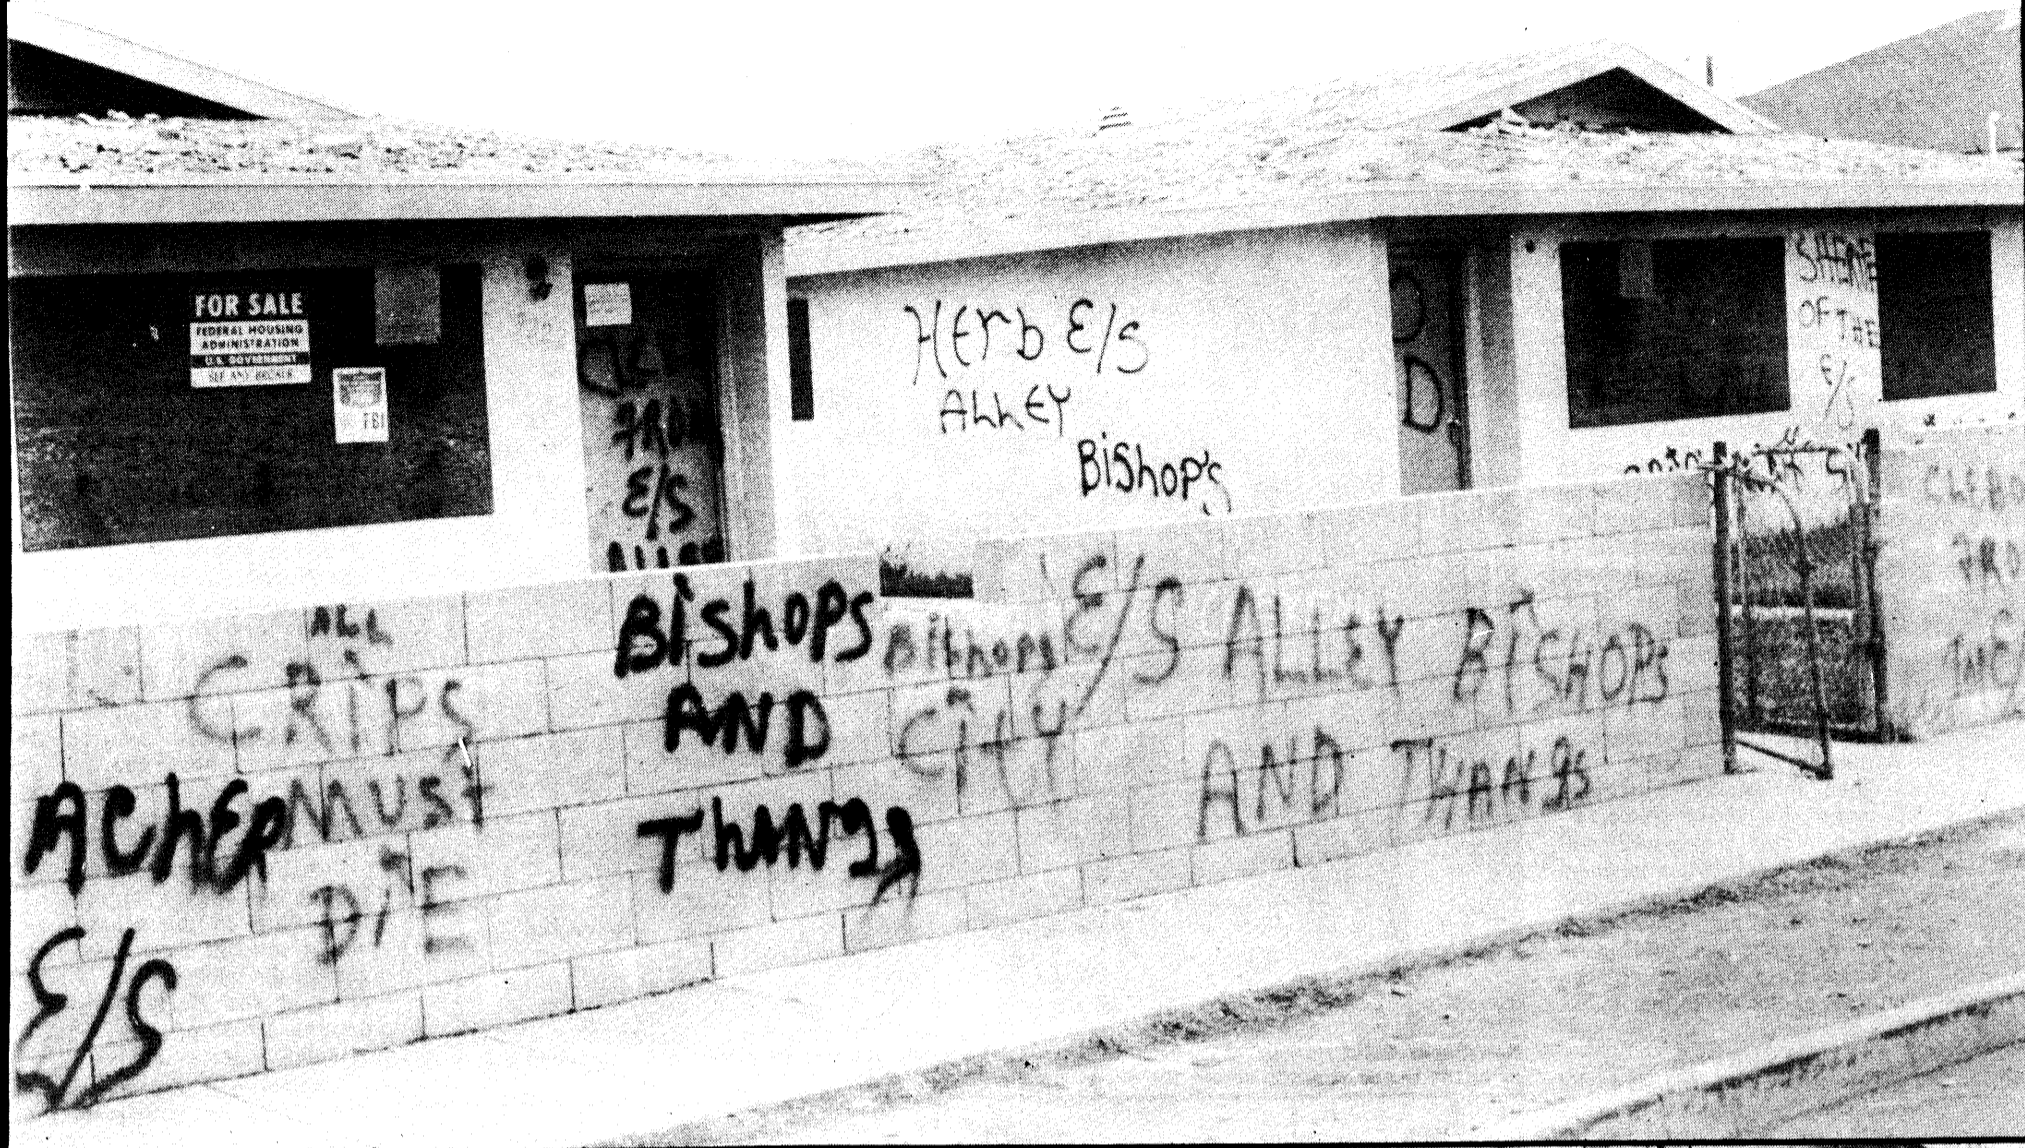 FOR SALE
FEDERAL HOUSING
ADMINISTRATION
U.S. GOVERNMENT
SEE ANY BROKER
FBI
FROM
E/S
HErb E/S
ALLEY
BiShop's
D
OF THE
E/S
ALL
CRiPS
MUST
DiE
ACHER
E/S
BiShOPS
AND
ThANgs
Bishops
CiTY
E/S ALLEY BiSHOPs
AND THANgs